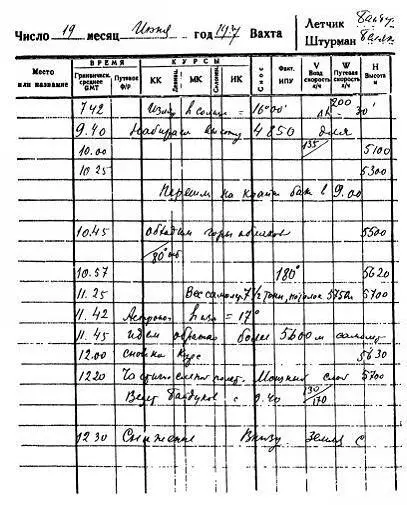 Число 19 месяц Июня год 1937 Вахта Летчик Байду
Штурман Беляк
Место или название
ВРЕМЯ
Гринвичск. среднее GMT
Путевое Ф/Р
КУРСЫ
КК
Девиац.
МК
Склонен.
ИК
Снос
Факт. ИПУ
V Возд скорость к/ч
W Путевая скорость к/ч
H Высота м
7.42 h солнца = 16°00' 200 30'
9.40 Набираем высоту 4850 для
10.00 135 5100
10.25 5300
Перешли на крайн бак в 9.00
10.45 обходим горы облаков 5500
80°
10.57 180° 5620
11.25 Вес самол. 7 1/2 тонн, потолок 5750м 5700
11.42 Астроном h = 17°
11.45 идем обратно более 5600 м самолет
12.00 снова на курс 5630
12.20 Частично слепой полет. Мощный слой 5700
Ведет Байдуков с 9.40 130/170
12.30 Снижение Внизу земля с